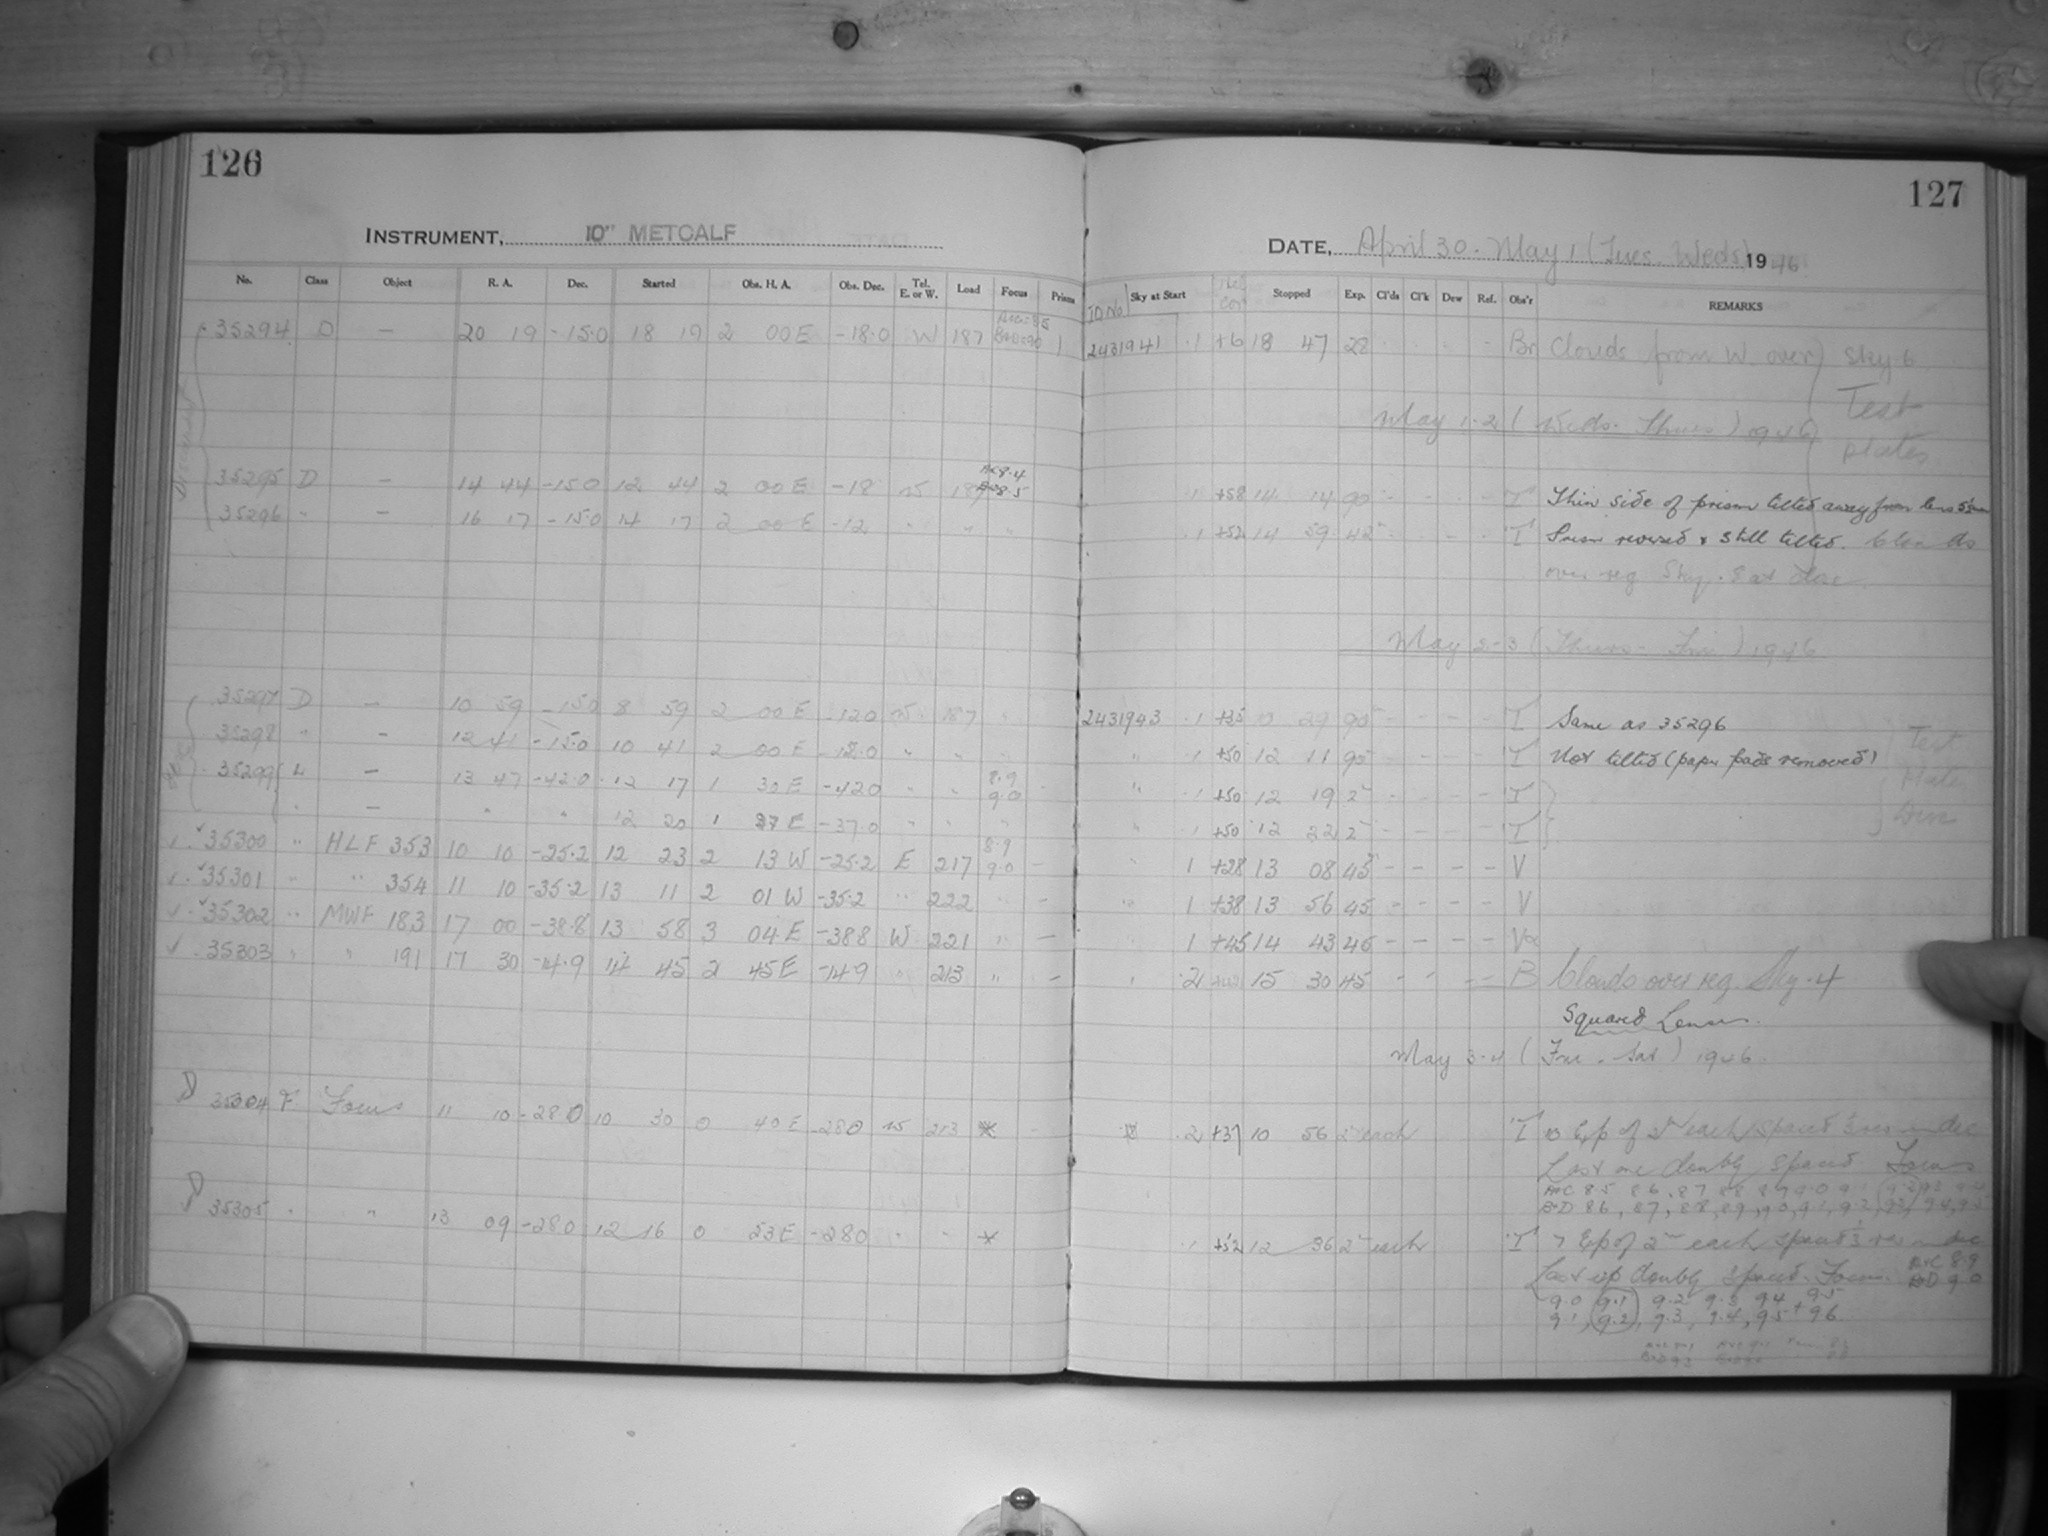 126
127
INSTRUMENT, 10" METCALF
DATE, April 30 - May 1 (Tues. Weds) 1946
No. Class Object R. A. Dec. Started Obs. H. A. Obs. Dec. Tel. E. or W. Load Focus Prisms
JD No. Sky at Start Stopped Exp. Cl'ds Cl'k Dew Ref. Obs'r REMARKS
35294 D - 20 19 -15.0 18 19 2 00 E -18.0 W 187 1 2431941 .1 +6 18 47 28 - - - Br Clouds from W. over Sky 6
Test
May 1-2 (Weds. Thurs) 1946
plates
35295 D - 14 44 -15.0 12 44 2 00 E -18 W 187 A+C 8.4 B+D 8.5 .1 +58 14 14 90 - - - - T Thin side of prism tilted away from lens
35296 " - 16 17 -15.0 14 17 2 00 E -12 " " " .1 +52 14 59 42 - - - - T Prism reversed & still tilted. Clouds
over reg Sky .8 at close
May 2-3 (Thurs - Fri) 1946
35297 D - 10 59 -15.0 8 59 2 00 E -12.0 W 187 " 2431943 .1 +35 29 90 - - - - T Same as 35296
35298 " - 12 41 -15.0 10 41 2 00 E -18.0 " " " .1 +50 12 11 90 - - - - T Not tilted (paper pads removed)
Test
35299 L - 13 47 -42.0 12 17 1 30 E -42.0 " " 8.9 9.0 " .1 +50 12 19 2 - - - - T
" - " " 12 20 1 27 E -37.0 " " " " .1 +50 12 22 2 - - - - T
35300 " HLF 353 10 10 -25.2 12 23 2 13 W -25.2 E 217 8.9 9.0 - " 1 +28 13 08 45 - - - - V
35301 " " 354 11 10 -35.2 13 11 2 01 W -35.2 " 222 " - " 1 +38 13 56 45 - - - - V
35302 " MWF 183 17 00 -38.8 13 58 3 04 E -38.8 W 221 " - " 1 +45 14 43 45 - - - - V
35303 " " 191 17 30 -14.9 14 45 2 45 E -14.9 " 213 " - " .2 15 30 45 - - - - B Clouds over reg. Sky .4
Squared Lens.
May 3-4 (Fri - Sat) 1946
D 35304 F Focus 11 10 -28.0 10 30 0 40 E -28.0 W 213 * - .2 +37 10 56 2 each T 10 Exp of 2m each spaced in dec
Last one doubly spaced Focus
A+C 8.5 8.6, 8.7 8.8 8.9 9.0 9.1 9.2 9.3 9.4
B+D 8.6, 8.7, 8.8, 8.9, 9.0, 9.1, 9.2, 9.3, 9.4, 9.5
D 35305 " " 13 09 -28.0 12 16 0 53 E -28.0 " " * .1 +52 12 36 2m each T 7 Exp of 2m each spaced in dec
Last exp doubly spaced. Focus A+C 8.9
B+D 9.0
9.0 9.1 9.2 9.3 9.4 9.5
9.1, 9.2, 9.3, 9.4, 9.5 + 9.6